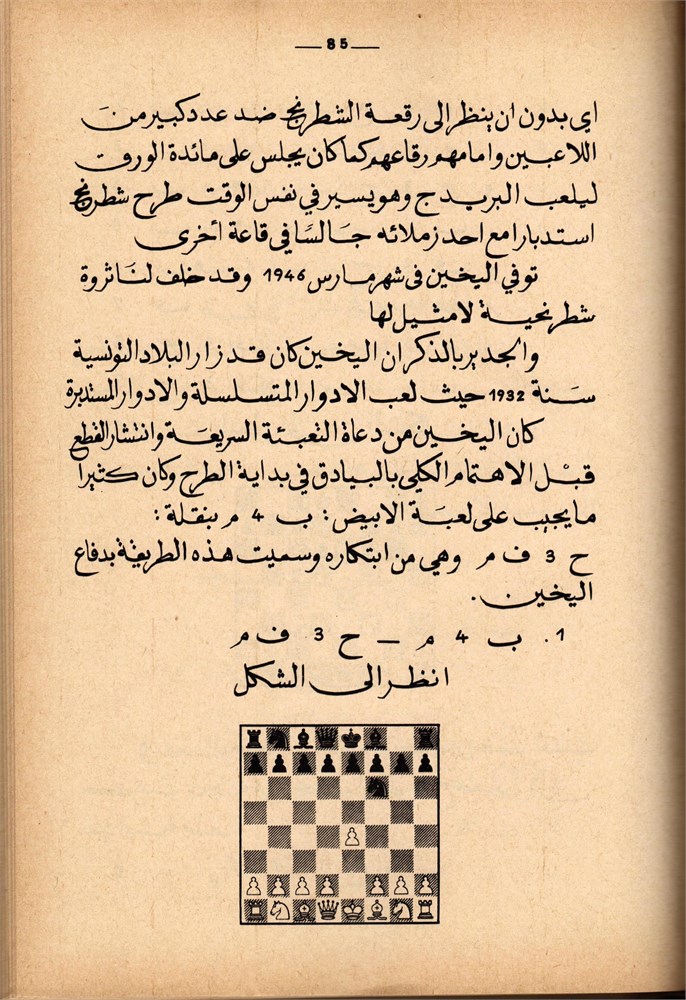 — 85 —
اي بدون ان ينظر الى رقعة الشطرنج ضد عدد كبير من
اللاعبين وامامهم رقاعهم كما كان يجلس على مائدة الورق
ليلعب البريدج وهو يسير في نفس الوقت طرح شطرنج
استدبارا مع احد زملائه جالسا في قاعة أخرى
توفي اليخين في شهر مارس 1946 وقد خلف لنا ثروة
شطرنجية لا مثيل لها
والجدير بالذكر ان اليخين كان قد زار البلاد التونسية
سنة 1932 حيث لعب الادوار المتسلسلة والادوار المستدبرة
كان اليخين من دعاة التعبئة السريعة وانتشار القطع
قبل الاهتمام الكلي بالبيادق في بداية الطرح وكان كثيرا
ما يجيب على لعبة الابيض : ب 4 م بنقلة :
ح 3 ف م وهي من ابتكاره وسميت هذه الطريقة بدفاع
اليخين .
1. ب 4 م — ح 3 ف م
انظر الى الشكل